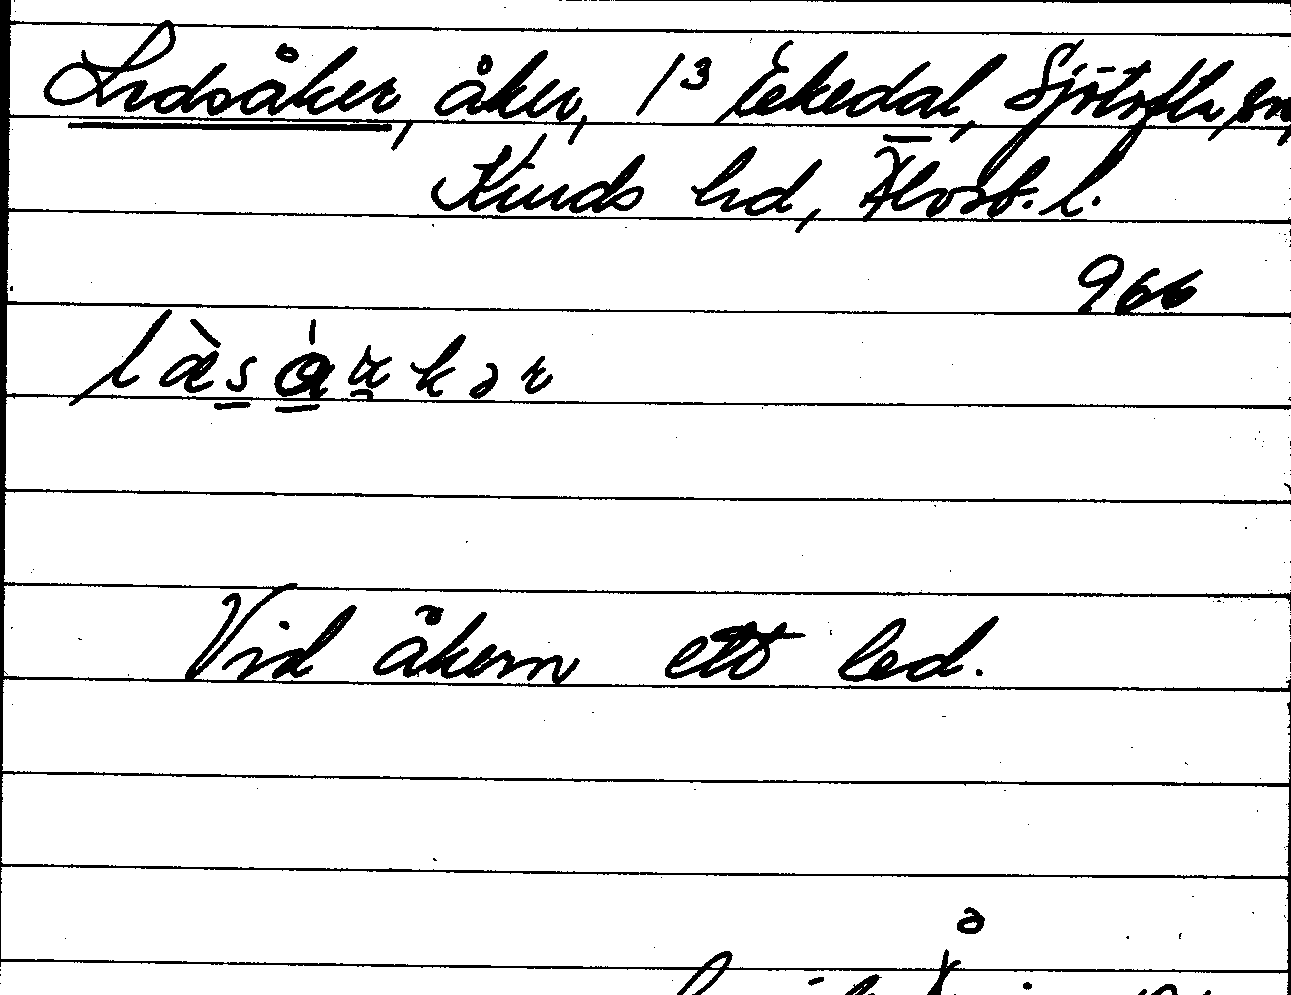 Ledsåker, åker, 1³ Ekedal, Sjötofta sn,
Kinds hd, Älvsb. l.
966
Vid åkern ett led.